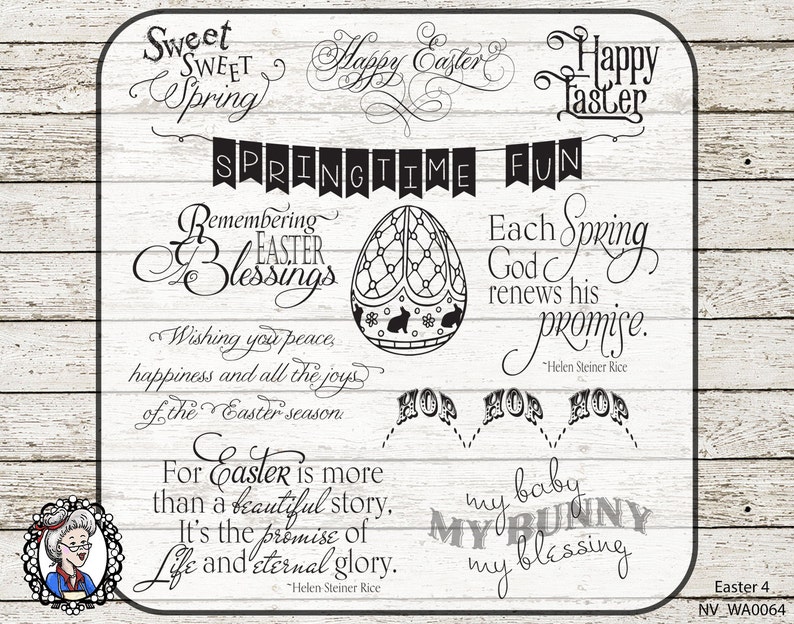 Sweet
SWEET
Spring
Happy Easter
Happy
Easter
SPRINGTIME FUN
Remembering
EASTER
Blessings
Each Spring
God
renews his
promise.
~Helen Steiner Rice
Wishing you peace,
happiness and all the joys
of the Easter season.
HOP HOP HOP
For Easter is more
than a beautiful story,
It's the promise of
Life and eternal glory.
~Helen Steiner Rice
my baby
MY BUNNY
my blessing
Easter 4
NV_WA0064